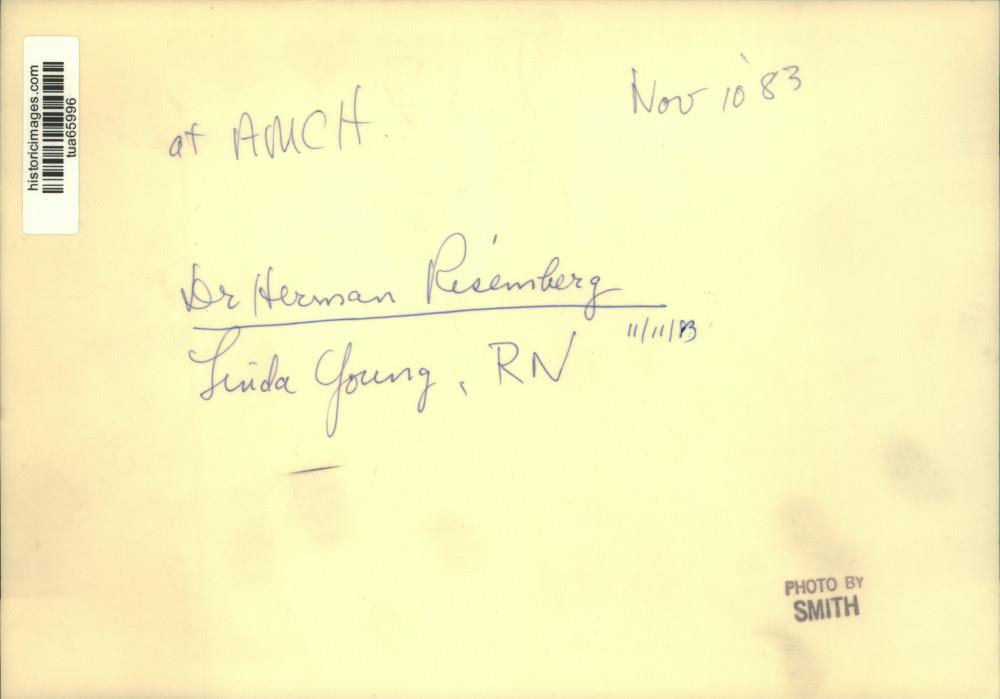 historicimages.com
tua65996
at AMCH.
Nov 10 '83
Dr Herman Risemberg
11/11/83
Linda Young, RN
PHOTO BY
SMITH